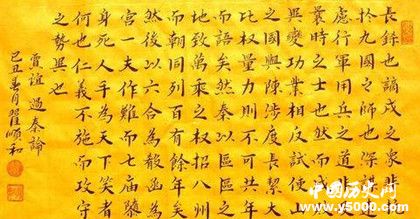 長鎩也謫戍之衆非
扵九國之師也深
慮行軍用兵之道非
曩時之士也然而
異變功業相反試使
之國與陳涉度長絜大
比權量力則不可同年
而語矣然秦以區區之
地致萬乘之權招八州
而朝同列百有餘年矣
然後以六合為家殽函為
宮一夫作難而七廟隳
身死人手為天下笑者
何也仁義不施而攻守
之勢異也
賈誼過秦論
己丑春月翟順和
中国历史网
www.y5000.com